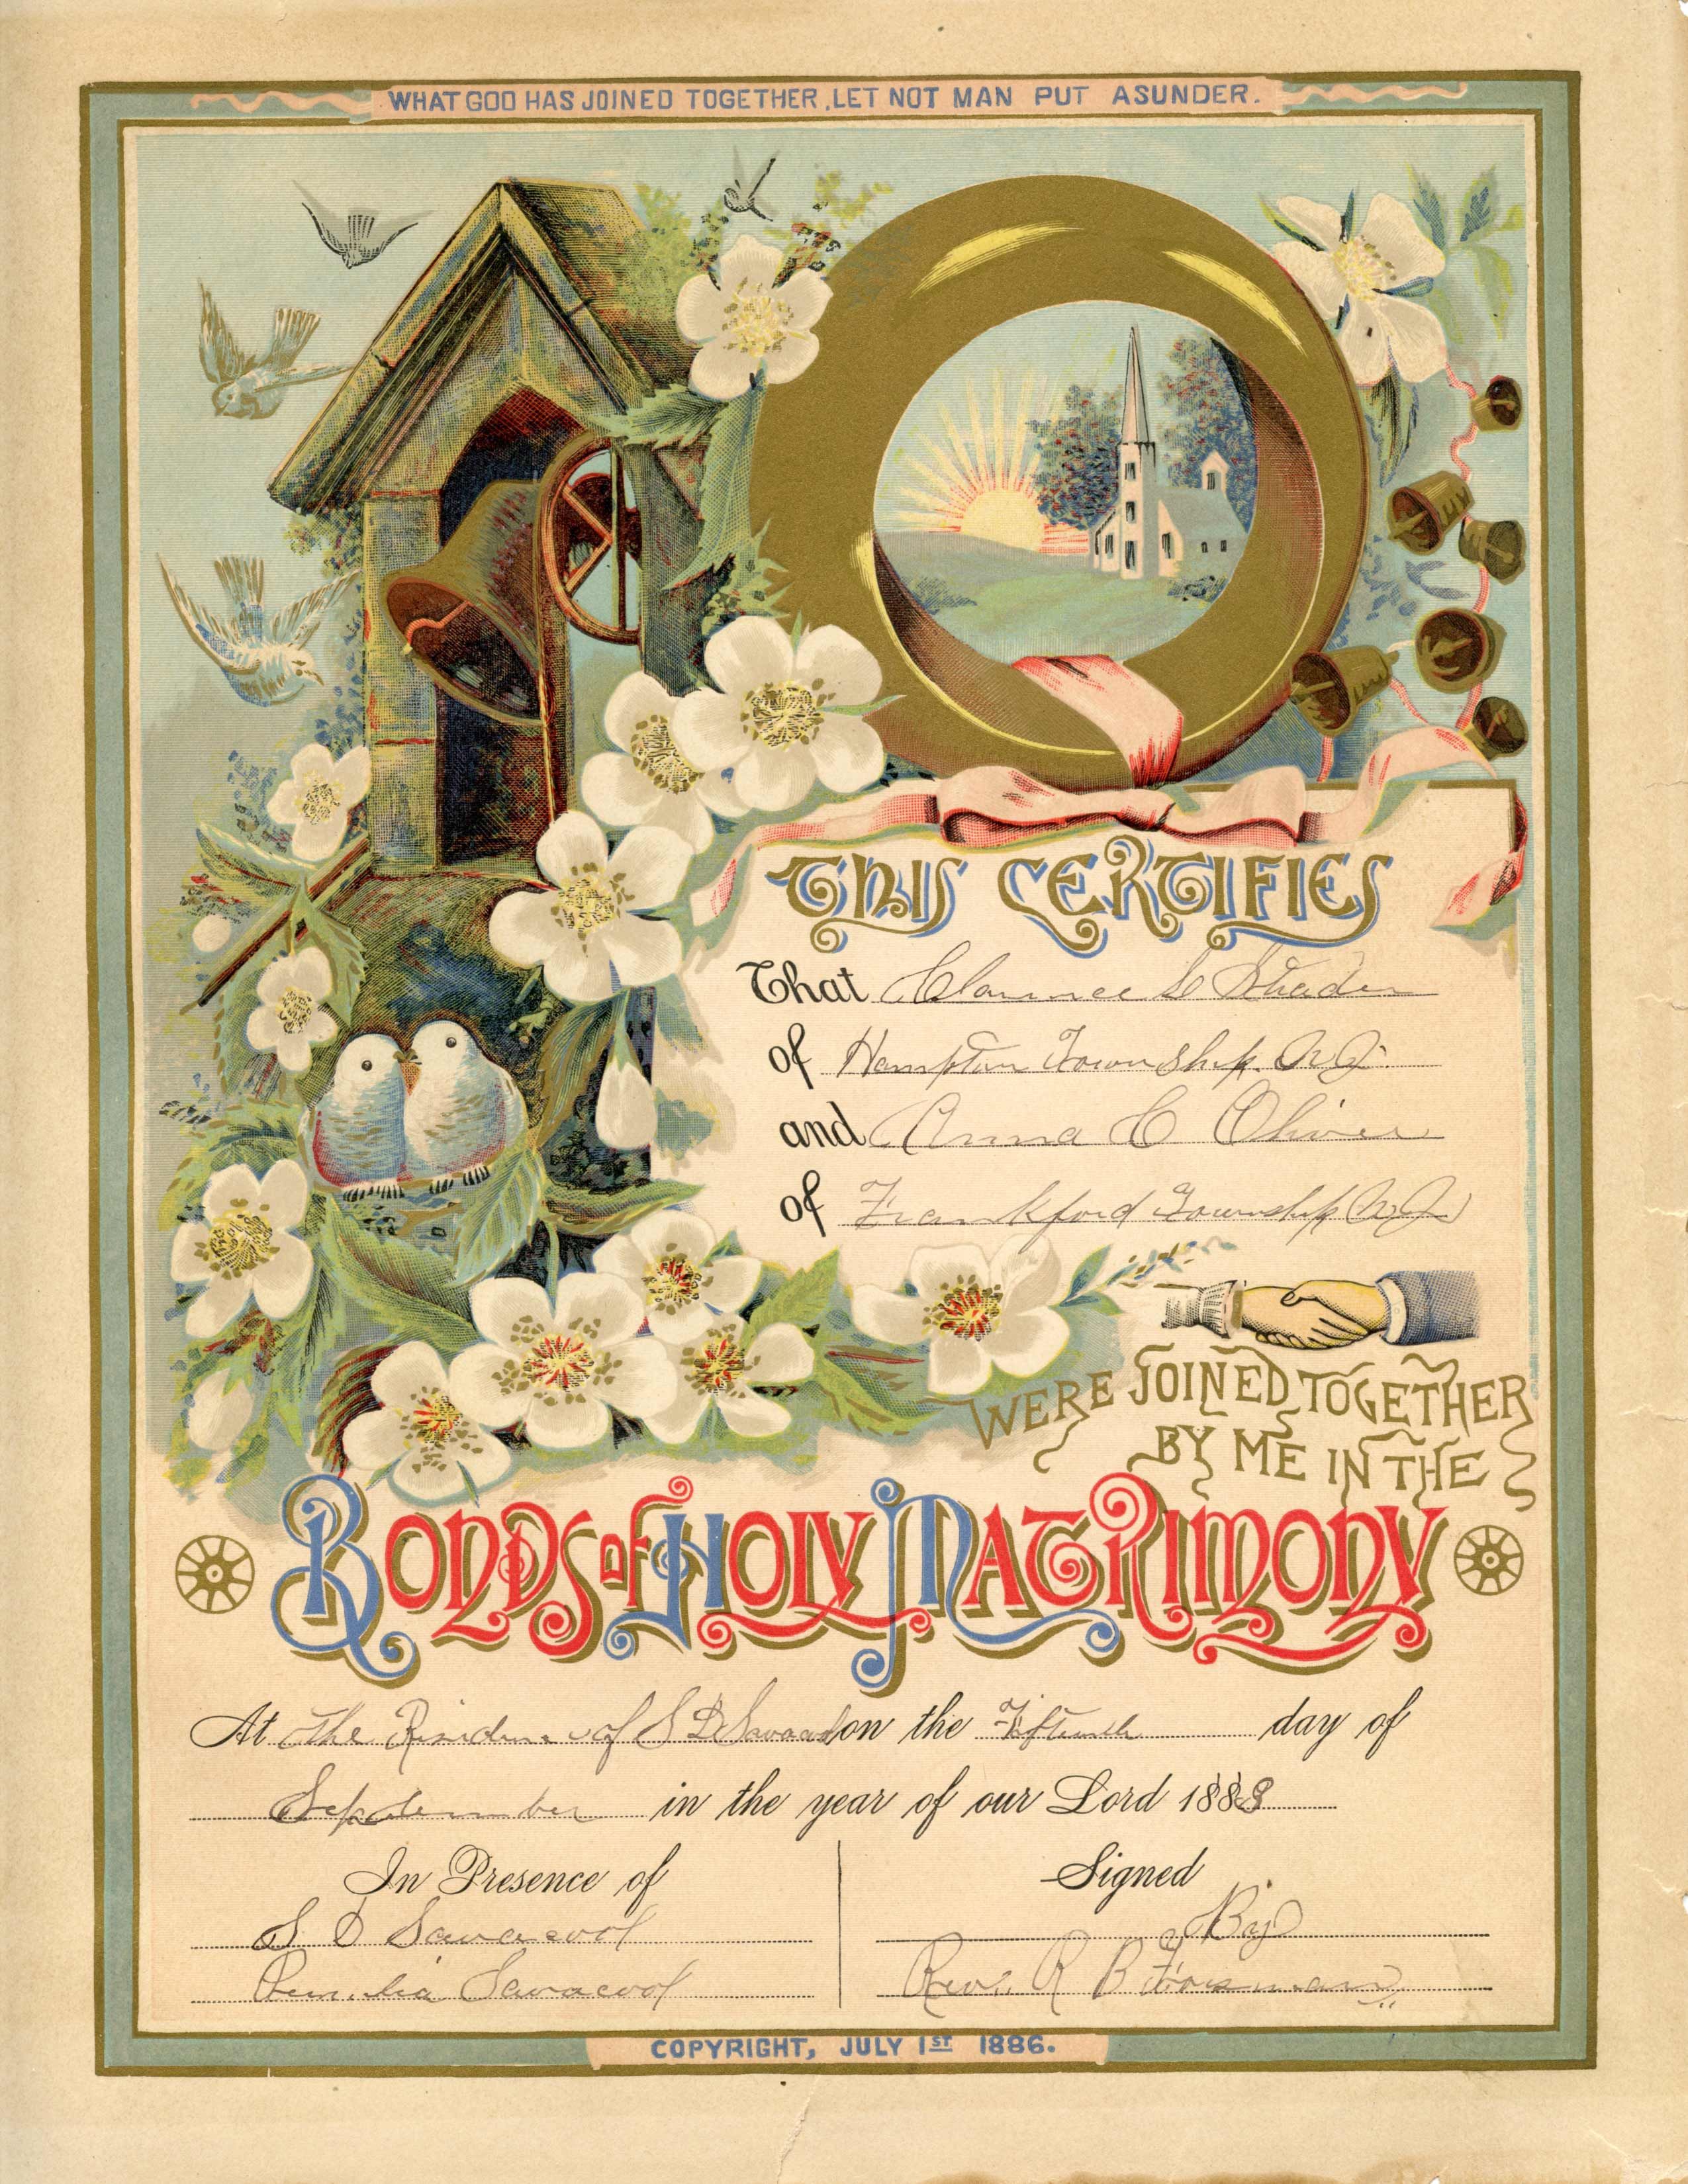 WHAT GOD HAS JOINED TOGETHER, LET NOT MAN PUT ASUNDER.
THIS CERTIFIES
That Clarence S Strader
of Hampton Township. N.J.
and Anna C Oliver
of Frankford Township N.J.
WERE JOINED TOGETHER
BY ME IN THE
BONDS OF HOLY MATRIMONY
At the Residence of S D on the Fifteenth day of
September in the year of our Lord 1888
In Presence of
Signed
S D Savacool
By
Savacool
Rev. R B Foresman
COPYRIGHT, JULY 1ST 1886.